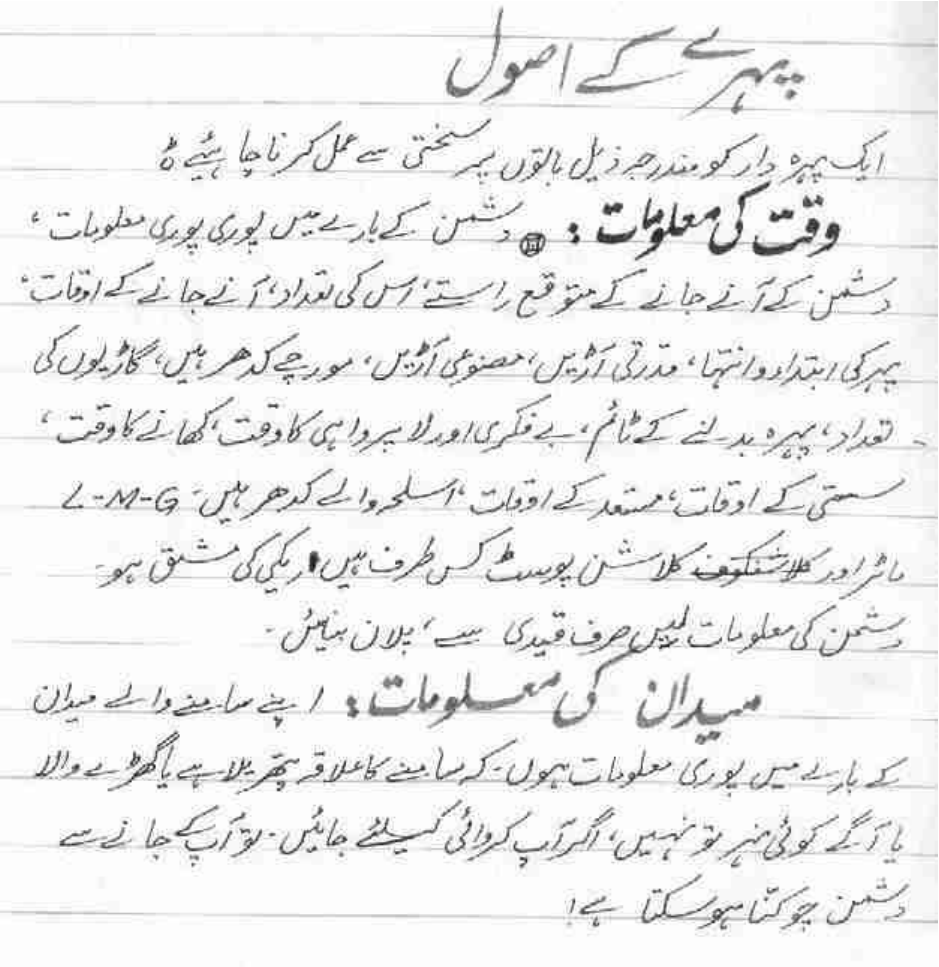 پہرے کے اصول
ایک پہرہ دار کو مندرجہ ذیل باتوں پر سختی سے عمل کرنا چاہئیے
وقت کی معلومات : دشمن کے بارے میں پوری پوری معلومات ،
دشمن کے آنے جانے کے متوقع راستے، اس کی تعداد، آنے جانے کے اوقات،
پہر کی ابتداء و انتہا، قدرتی آڑیں، مصنوعی آڑیں، مورچے کدھر ہیں، گاڑیوں کی
تعداد، پہرہ بدلنے کے ٹائم، بے فکری اور لا پرواہی کا وقت، کھانے کا وقت،
سستی کے اوقات، مستعد کے اوقات، اسلحہ والے کدھر ہیں۔ L-M-G
ماٹر اور کلاشنکوف کلاشن پوسٹ کس طرف ہیں، ریکی کی مشق ہو۔
دشمن کی معلومات لیں صرف قیدی سے، پلان بنائیں۔
میدان کی معلومات : اپنے سامنے والے میدان
کے بارے میں پوری معلومات ہوں۔ کہ سامنے کا علاقہ پتھریلا ہے یا گھڑے والا
یا آگے کوئی نہر تو نہیں، اگر آپ کروائی کیلئے جائیں۔ تو آپ کے جانے سے
دشمن چوکنا ہو سکتا ہے!